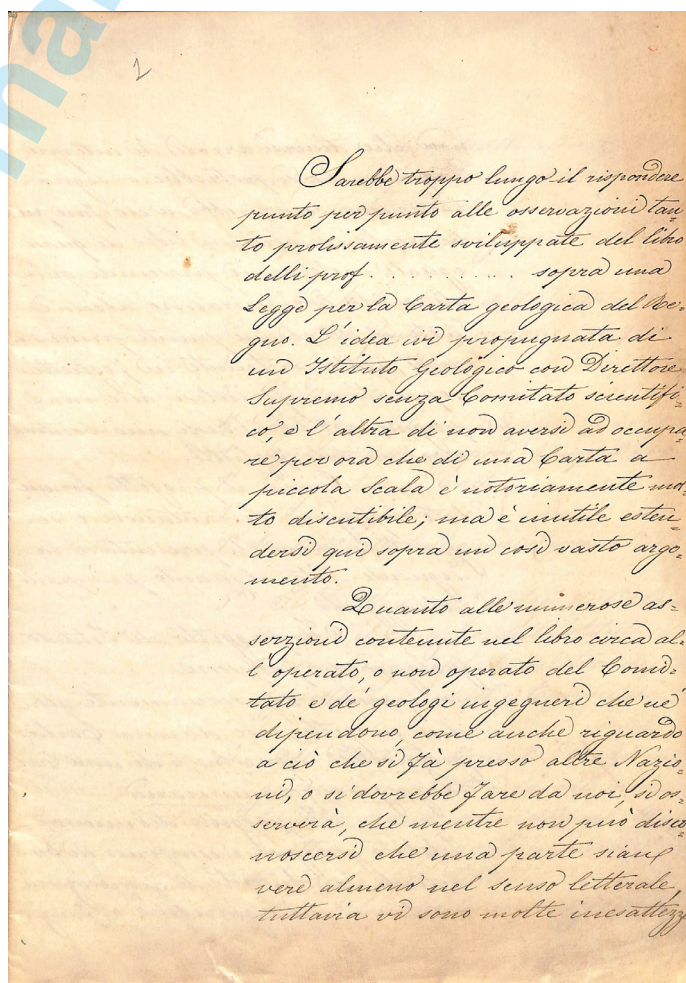 ma
2
Sarebbe troppo lungo il rispondere
punto per punto alle osservazioni tan-
to prolissamente sviluppate del libro
delli prof. . . . . . . . . . . sopra una
Legge per la Carta geologica del Re-
gno. L'idea ivi propugnata di
un Istituto Geologico con Direttore
Supremo senza Comitato scientifi-
co, e l'altra di non aversi ad occupa
re per ora che di una Carta a
piccola Scala è notoriamente mol-
to discutibile; ma è inutile esten-
dersi qui sopra un così vasto argo-
mento.
Quanto alle numerose as-
serzioni contenute nel libro circa al-
l'operato, o non operato del Comi-
tato e de' geologi ingegneri che ne
dipendono, come anche riguardo
a ciò che si fà presso altre Nazio-
ni, o si dovrebbe fare da noi, si os-
serverà, che mentre non può disco-
noscersi che una parte sian
vere almeno nel senso letterale,
tuttavia vi sono molte inesattezz